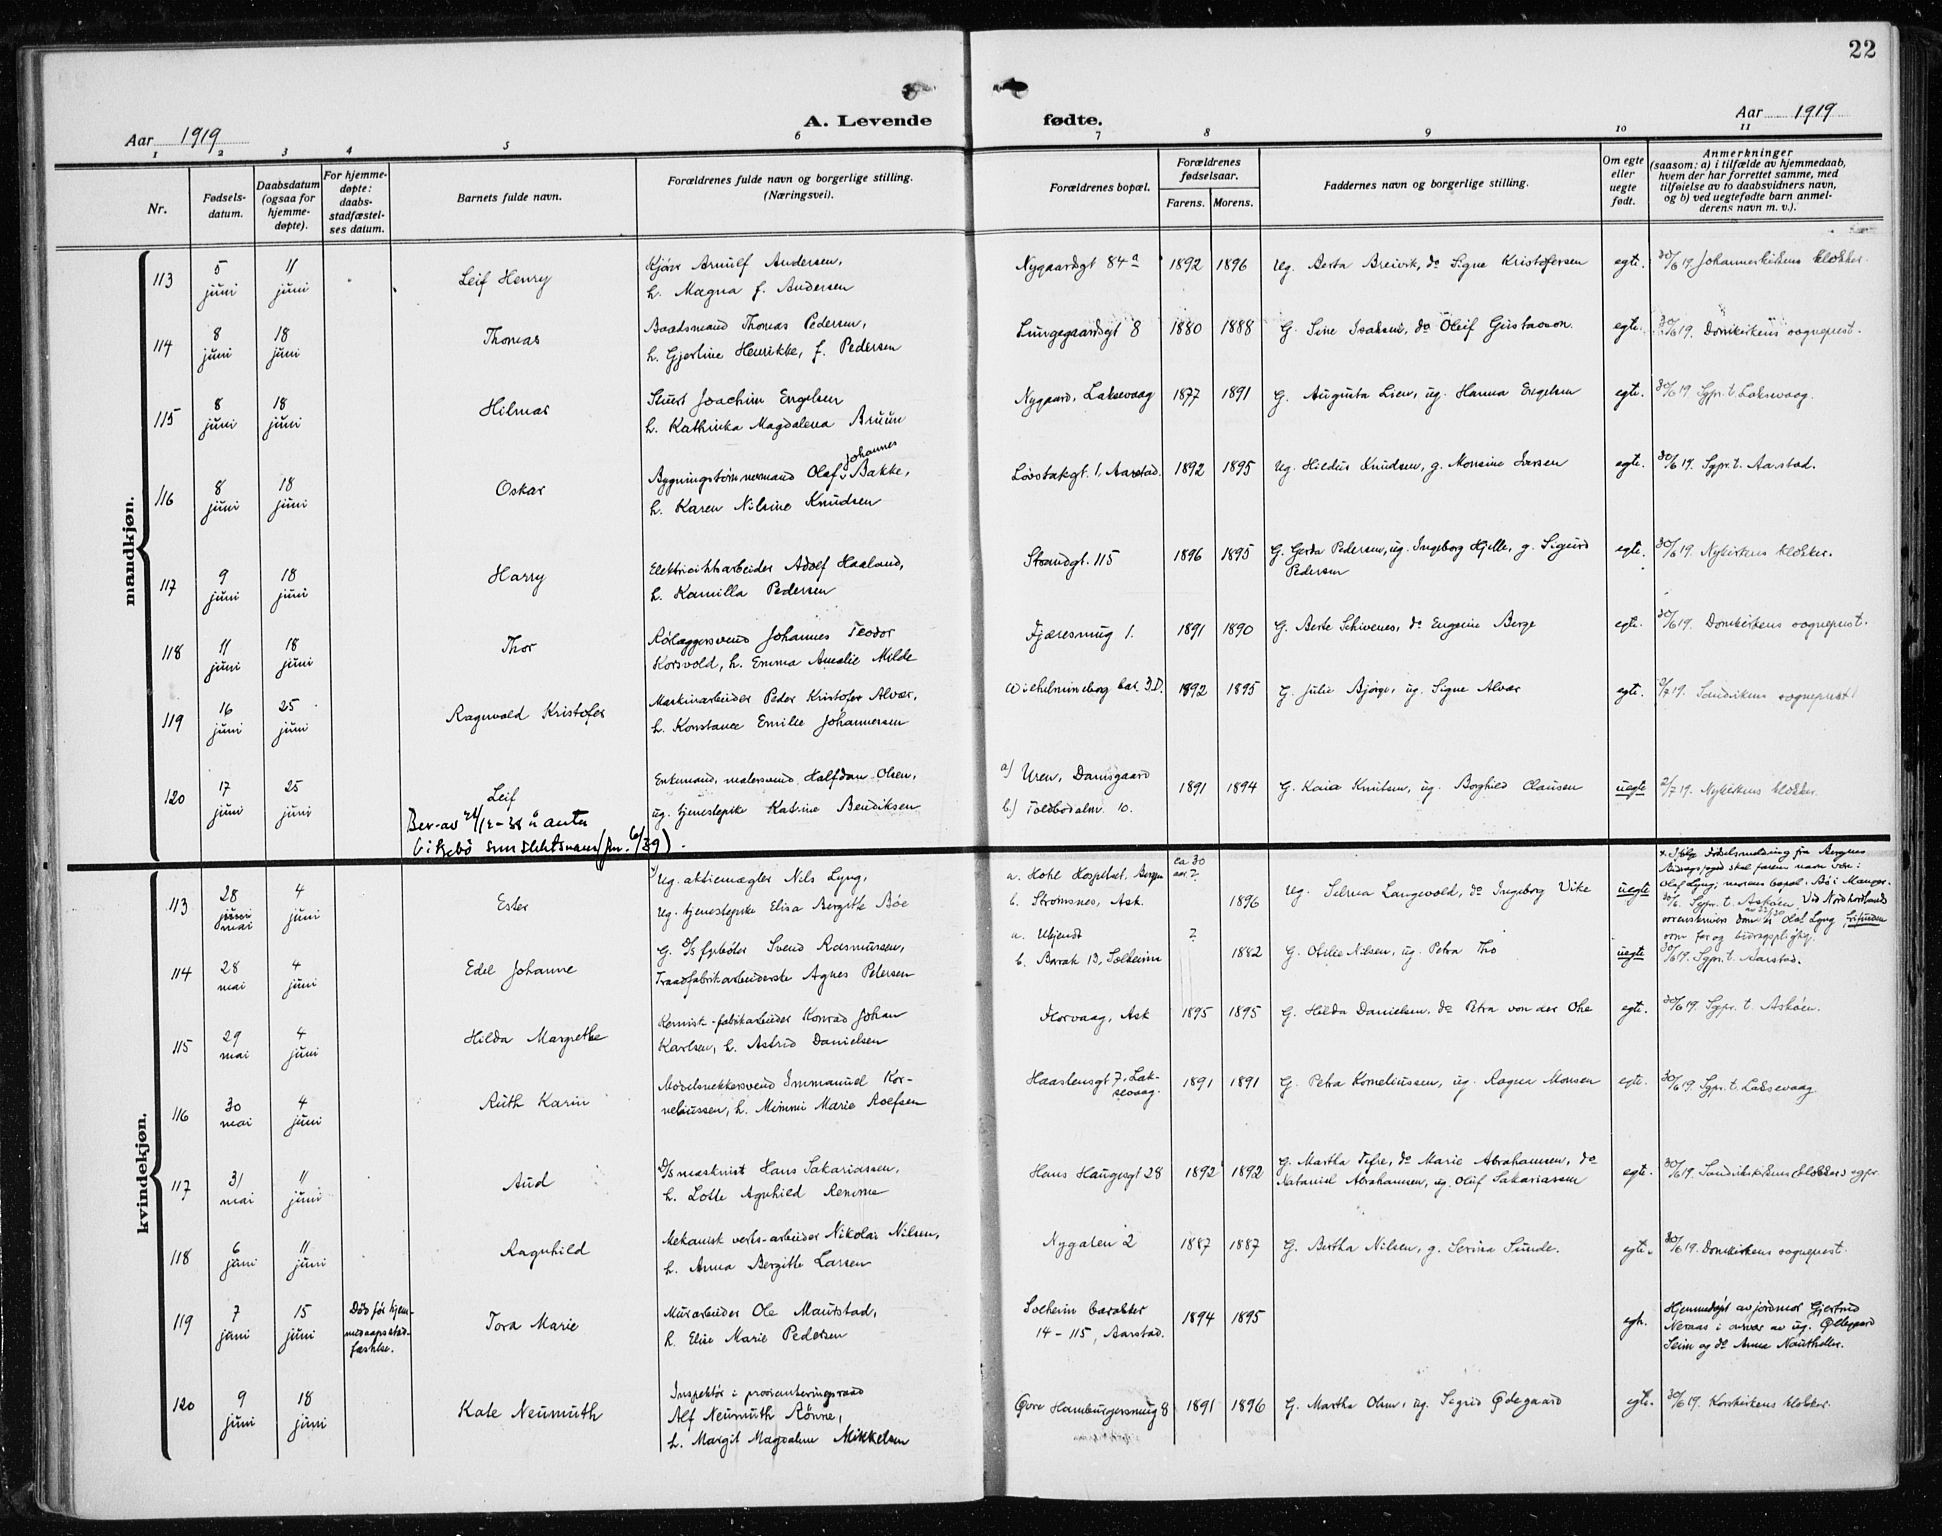 22
Aar 1919
A. Levende fødte.
Aar 1919
1 2 3 4 5 6 7 8 9 10 11
Nr.
Fødsels-
datum.
Daabsdatum
(ogsaa for
hjemme-
døpte).
For hjemme-
døpte:
daabs-
stadfæstel-
ses datum.
Barnets fulde navn.
Forældrenes fulde navn og borgerlige stilling.
(Næringsvei).
Forældrenes bopæl.
Forældrenes
fødselsaar.
Farens. Morens.
Faddernes navn og borgerlige stilling.
Om egte
eller
uegte
født.
Anmerkninger
(saasom: a) i tilfælde av hjemmedaab,
hvem der har forrettet samme, med
tilføielse av to daabsvidners navn,
og b) ved uegtefødte barn anmel-
derens navn m. v.).
mandkjøn.
113 5 juni 11 juni Leif Henry
Kjører Arnulf Andersen,
h. Magna f. Andersen
Nygaardsgt 84a 1892 1896 Ug. Berta Breivik, do Signe Kristofersen egte. 30/6 19 Johanneskirkens klokker.
114 8 juni 18 juni Thomas
Baadsmand Thomas Pedersen,
h. Gjertine Henrikke, f. Pedersen
Lungegaardsgt 8 1880 1888 G. Sine Isaksen, do Oleif Gustavson. egte. 30/6 19. Domkirkens sogneprest.
115 8 juni 18 juni Hilmar
Stuert Joachim Engelsen
h. Kathinka Magdalena Bruun
Nygaard, Laksevaag 1877 1891 G. Augusta Lien, ug. Hanna Engelsen egte. 30/6 19. Sgpr. t. Laksevaag.
116 8 juni 18 juni Oskar
Bygningstømmermand Olaf Johannes Bakke,
h. Karen Nilsine Knudsen
Løvstakgt. 1. Aarstad. 1892 1895 Ug. Hildus Knudsen, g. Monsine Iversen egte. 30/6 19. Sgpr. t. Aarstad.
117 9 juni 18 juni Harry
Elektricitetsarbeider Adolf Haaland,
h. Kamilla Pedersen
Strandgt. 115 1896 1895 G. Gerda Pedersen, ug. Ingeborg Hjelle, g. Sigurd
Pedersen egte. 30/6 19. Nykirkens klokker.
118 11 juni 18 juni Thor
Rørlæggersvend Johannes Teodor
Korsvold, h. Emma Amalie Milde
Fjæresmug 1. 1891 1890 G. Berte Schivenes, do Eugenie Berge egte. 30/6 19. Domkirkens sogneprest.
119 16 juni 25 juni Ragnvald Kristofer
Maskinarbeider Peder Kristofer Alvær,
h. Konstance Emilie Johannesen
Wilhelmineborg bar. 3.D. 1892 1895 G. Julie Bjørge, ug. Signe Alvær egte. 2/7 19. Sandvikens sogneprest
120 17 juni 25 juni Leif
Enkemand, malersvend Halfdan Olsen,
ug. tjenestepike Katrine Bendiksen
a) Uren, Damsgaard
b) Toldbodalm. 10. 1891 1894 G. Kaia Knutsen, ug. Borghild Clausen uegte 2/7 19. Nykirkens klokker.
kvindekjøn.
113 28 mai 4 juni Ester
Ug. aktiemægler Nils Lyng,
Ug. tjenestepike Elisa Bergitte Bøe
a. Hotel Hospitset. Bergen ca 30 aar ?
b. Stromsnes, Ask. 1896 Ug. Selma Langevold, do Ingeborg Vike uegte
114 28 mai 4 juni Edel Johanne
G. D/S fyrbøter Svend Rasmussen,
Traadfabrikarbeiderske Agnes Petersen
a. Ukjendt ?
b. Barak 13, Solheim 1882 G. Otilie Nilsen, ug. Petra Tho uegte 30/6 19. Sgpr. t. Aarstad.
115 29 mai 4 juni Hilda Margrethe
Kemisk-fabrikarbeider Konrad Johan
Karlsen, h. Astrid Danielsen
Florvaag, Ask 1895 1895 G. Hilda Danielsen, do Petra von der Ohe egte. 30/6 19. Sgpr. t. Askøen.
116 30 mai 4 juni Ruth Karin
Modelsnekkersvend Immanuel Kor-
neliussen, h. Mimmi Marie Roefsen
Haastensgt 7, Lak-
sevaag. 1891 1891 G. Petra Korneliussen, ug. Ragna Monsen egte. 30/6 19. Sgpr. t. Laksevaag
117 31 mai 11 juni Aud
D/S maskinist Hans Sakariassen,
h. Lotte Agnhild Remme
Hans Haugesgt 28 1892 1892 G. Martha Tefre, do Marie Abrahamsen, do
Nataniel Abrahamsen, ug. Oluf Sakariassen egte. 30/6 19.
118 6 juni 11 juni Ragnhild
Mekanisk verks-arbeider Nikolai Nilsen,
h. Anna Bergitte Larsen
Nygaten 2 1887 1887 G. Bertha Nilsen, g. Serina Sunde. egte. 30/6 19. Domkirkens sogneprest.
119 7 juni 15 juni Død før hjem-
medaapsstad-
fæstelse. Tora Marie
Murarbeider Ole Maurstad,
h. Elise Marie Pedersen
Solheim barakker
14 - 115, Aarstad. 1894 1895 egte. Hjemmedøpt av jordmor Gjertrud
Neraas i nærvær av ug. Øllegaard
Seim og do Anna Nauthella.
120 9 juni 18 juni Kate Neumuth
Inspektør i provianteringsraad
Alf Neumuth Rønne,
h. Margit Magdalene Mikkelsen
Øvre Hamburgersmug 8 1891 1896 G. Martha Olsen, ug. Sigrid Ødegaard egte. 30/6 19. Korskirkens klokker.